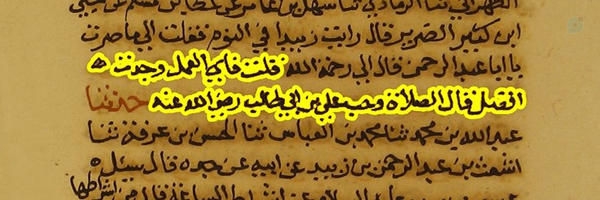 ابن كثير الضرير قال رايت زبيدا في النوم فقلت الي ما صرت
يا ابا عبد الرحمن قال الي رحمة الله قلت فاي العمل وجدت
افضل قال الصلاة وحب علي بن ابي طالب رضي الله عنه حدثنا
عبد الله بن محمد ثنا محمد بن العباس ثنا الحسن بن عرفة ثنا
اشعث بن عبد الرحمن بن زبيد عن ابيه عن جده قال سئل